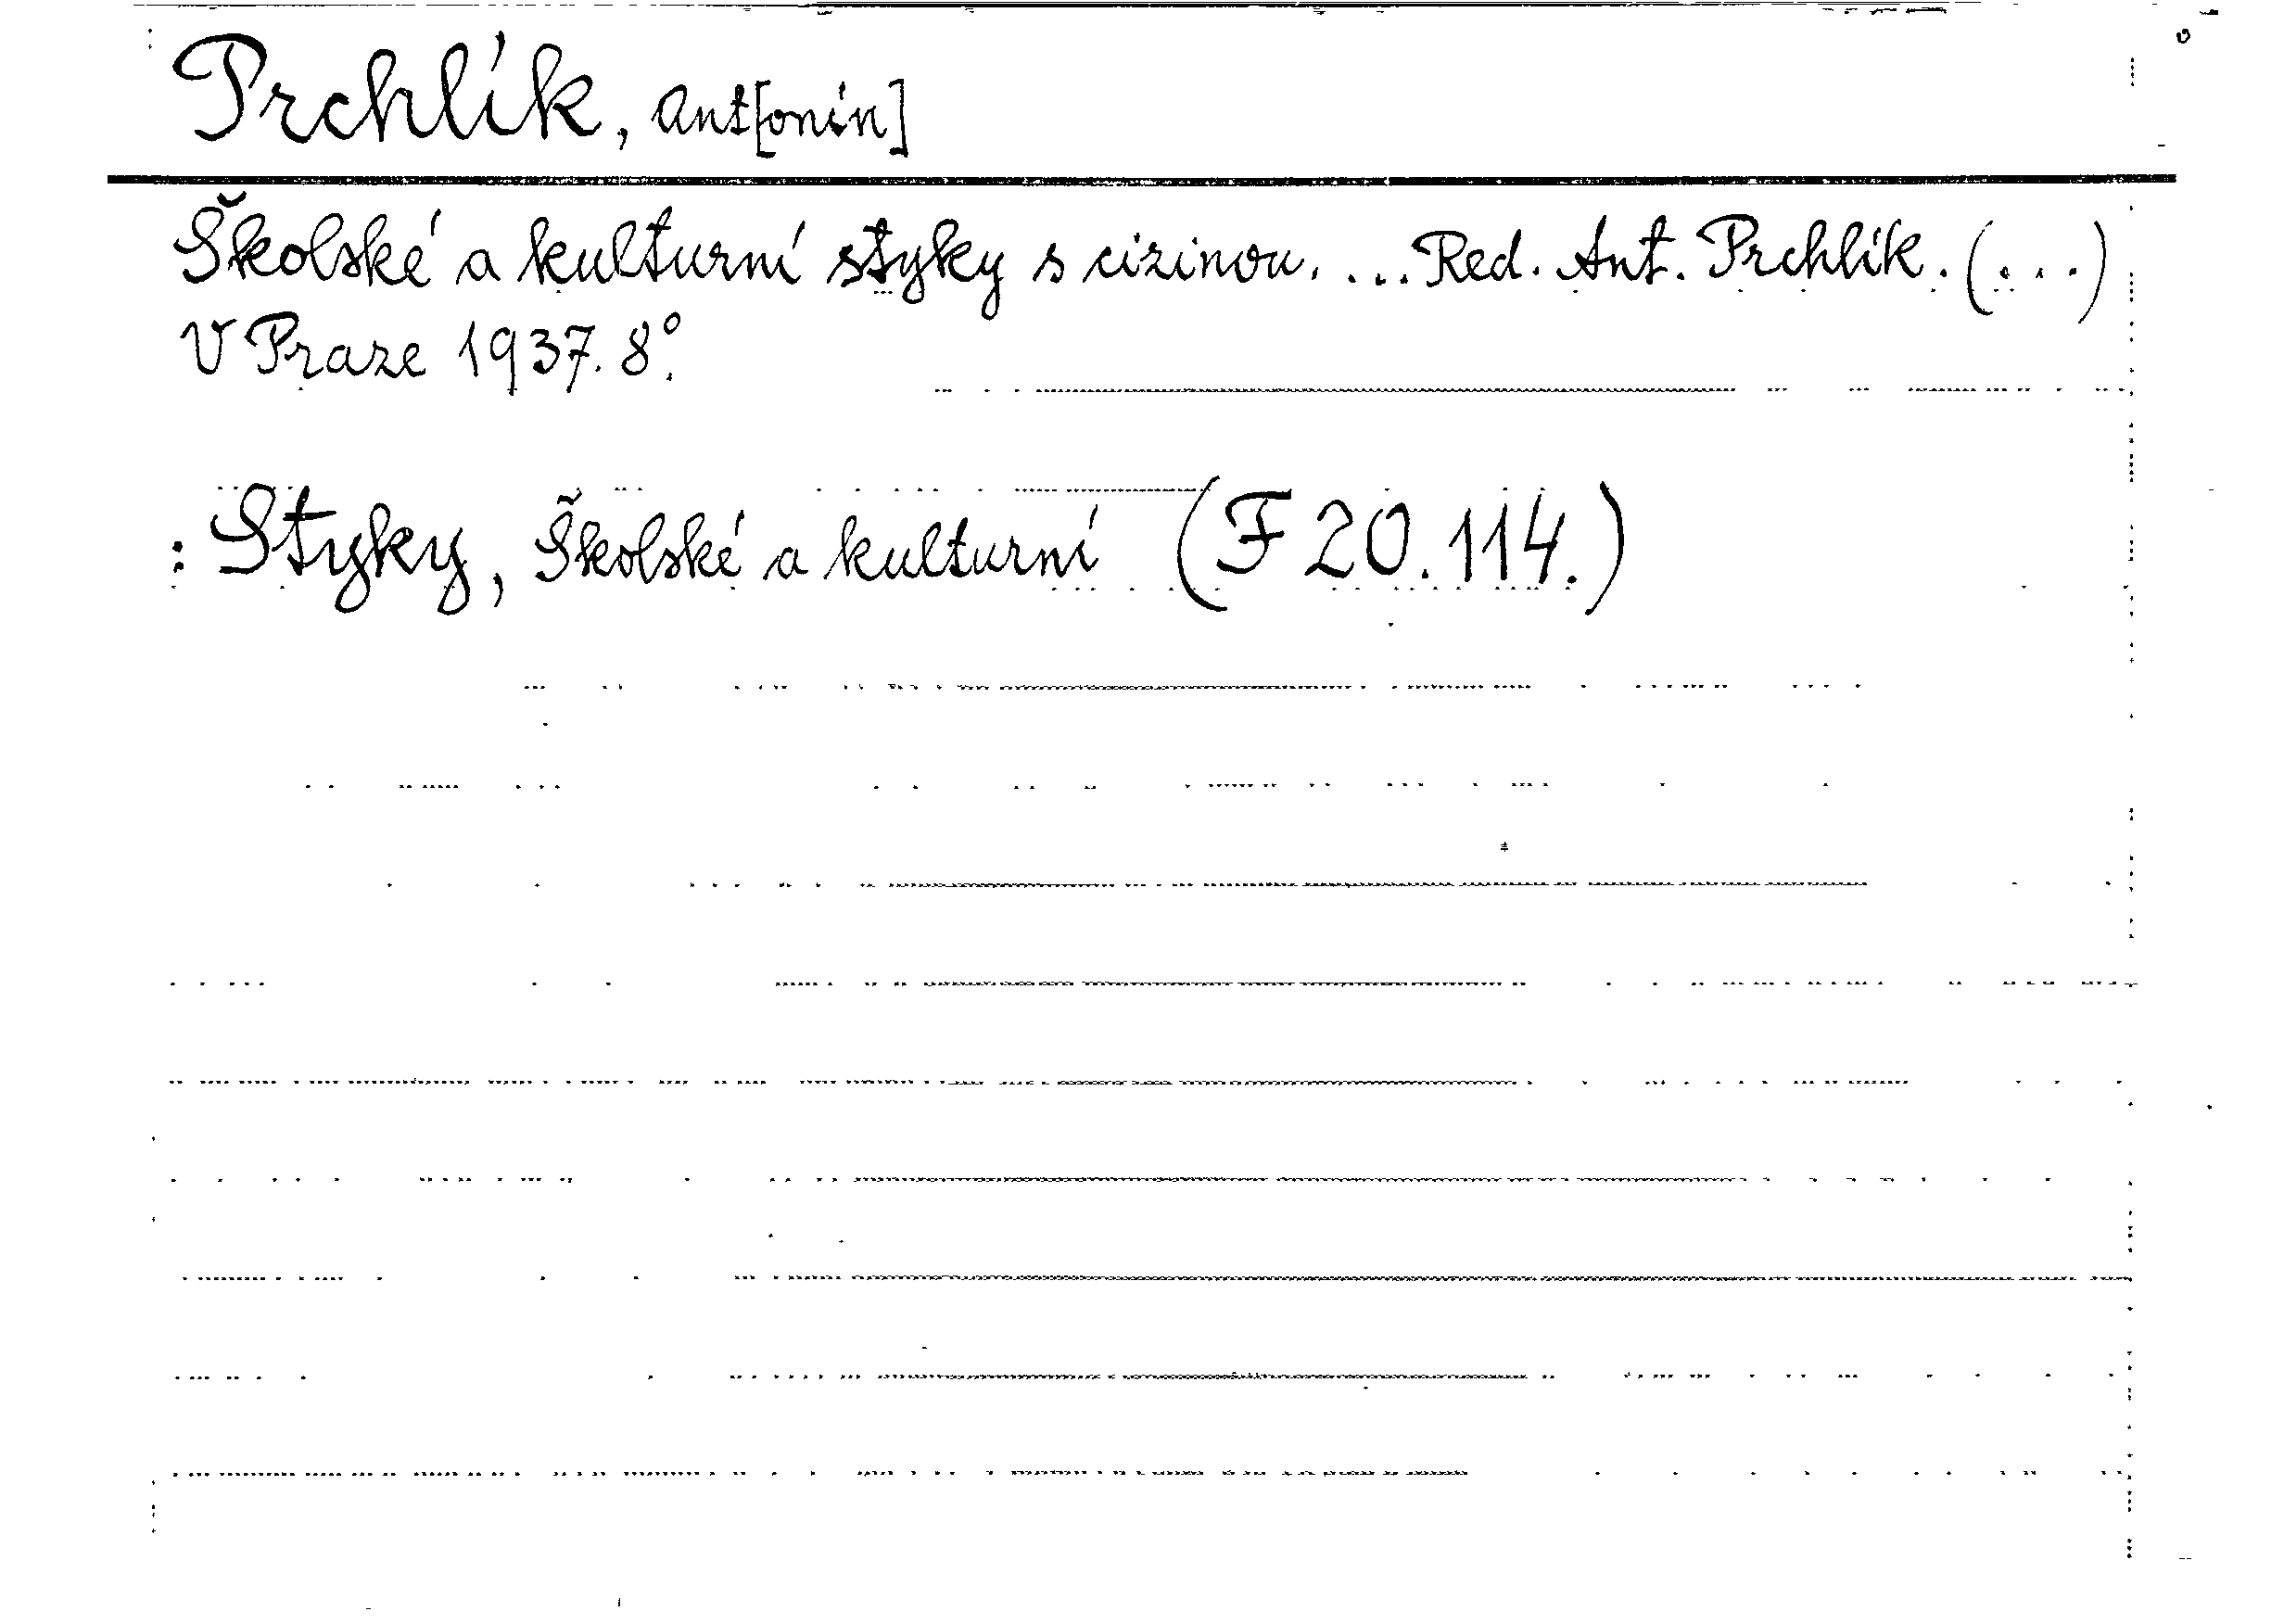 Prchlík, Ant[onín]
Školské a kulturní styky s cizinou. ... Red. Ant. Prchlík. (...)
V Praze 1937. 8°.
: Styky, Školské a kulturní (F 20.114.)